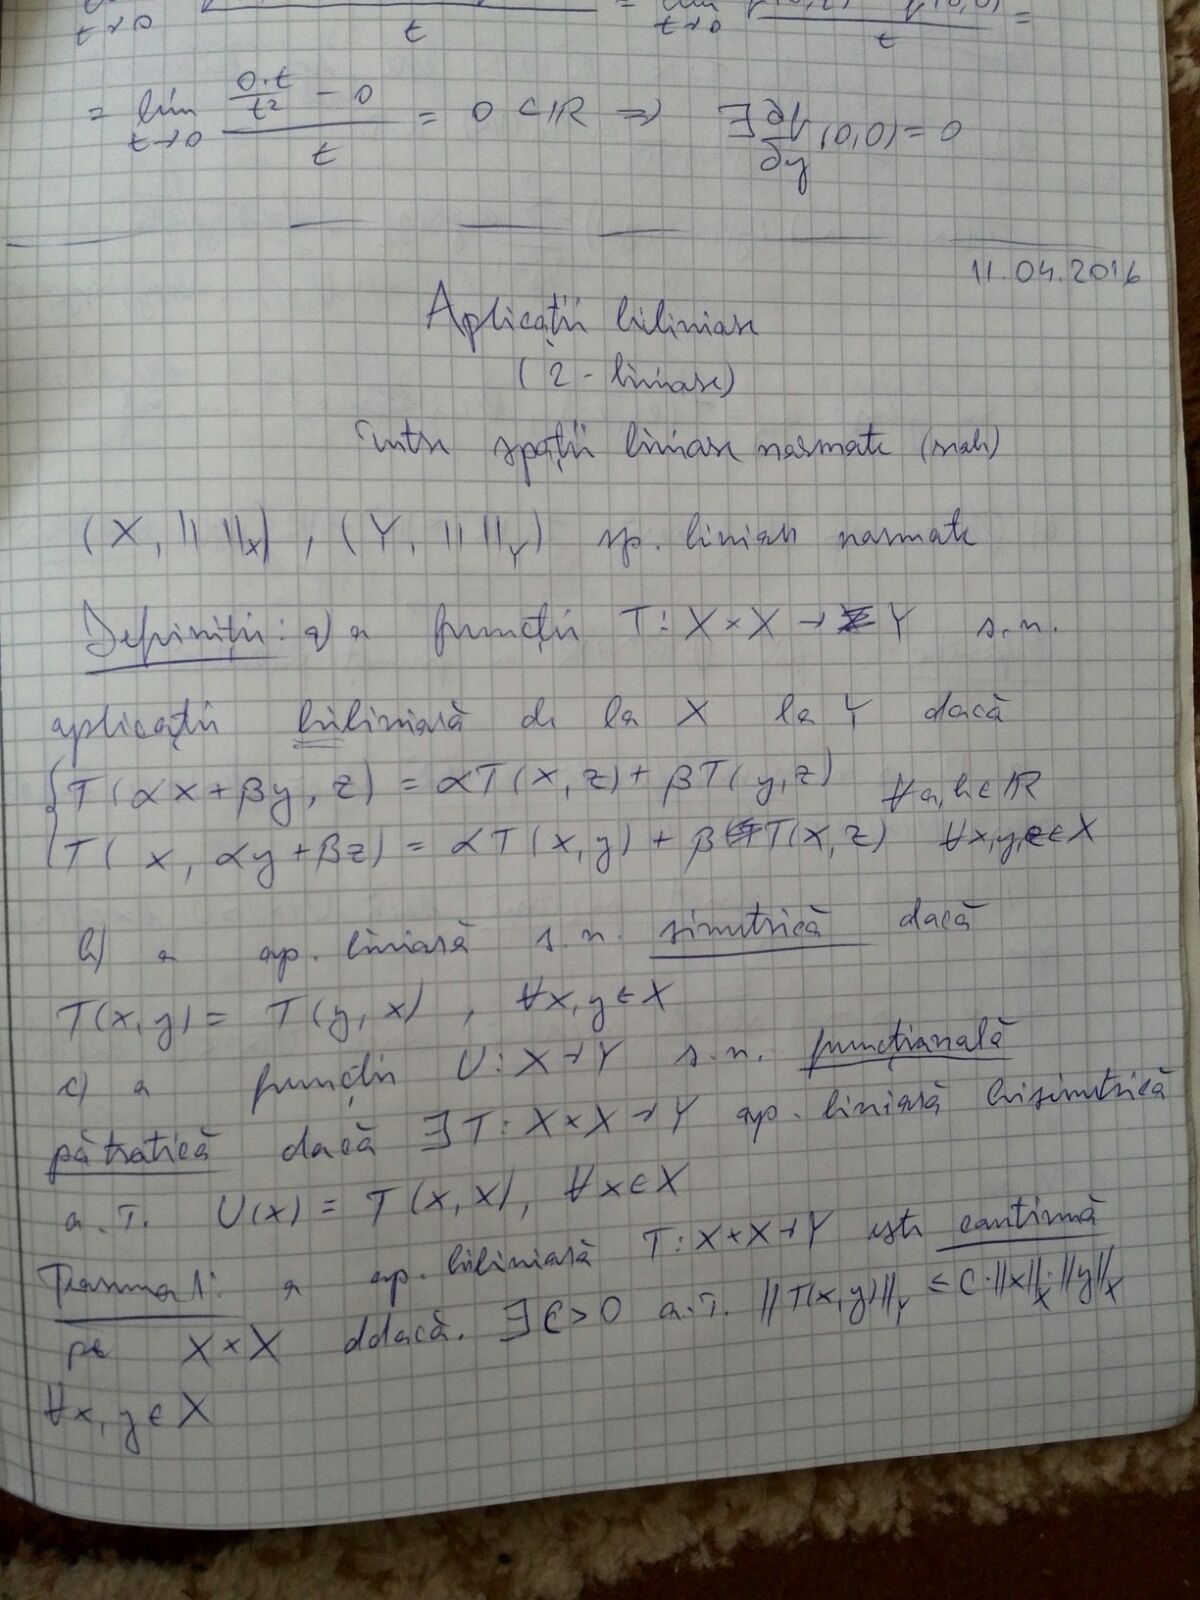 t→0 t = lim t→0 t =
= lim t→0 (0·t/t² - 0)/t = 0 ∈ ℝ ⇒ ∃ ∂f/∂y (0,0) = 0
11.04.2016
Aplicații biliniare
(2-liniare)
între spații liniare normate (reale)
(X, || ||_X), (Y, || ||_Y) sp. liniare normate
Definiție: a) o funcție T: X×X → Y s.n.
aplicație biliniară de la X la Y dacă
{ T(αx+βy, z) = αT(x,z) + βT(y,z) ∀a,b∈ℝ
T(x, αy+βz) = αT(x,y) + βT(x,z) ∀x,y,z∈X
b) o ap. liniară s.n. simetrică dacă
T(x,y) = T(y,x), ∀x,y∈X
c) o funcție U: X→Y s.n. funcțională
pătratică dacă ∃T: X×X→Y ap. liniară bisimetrică
a.î. U(x) = T(x,x), ∀x∈X
Teorema 1: o ap. biliniară T: X×X→Y este continuă
pe X×X ddacă. ∃C>0 a.î. ||T(x,y)||_Y ≤ C·||x||_X·||y||_X
∀x,y∈X